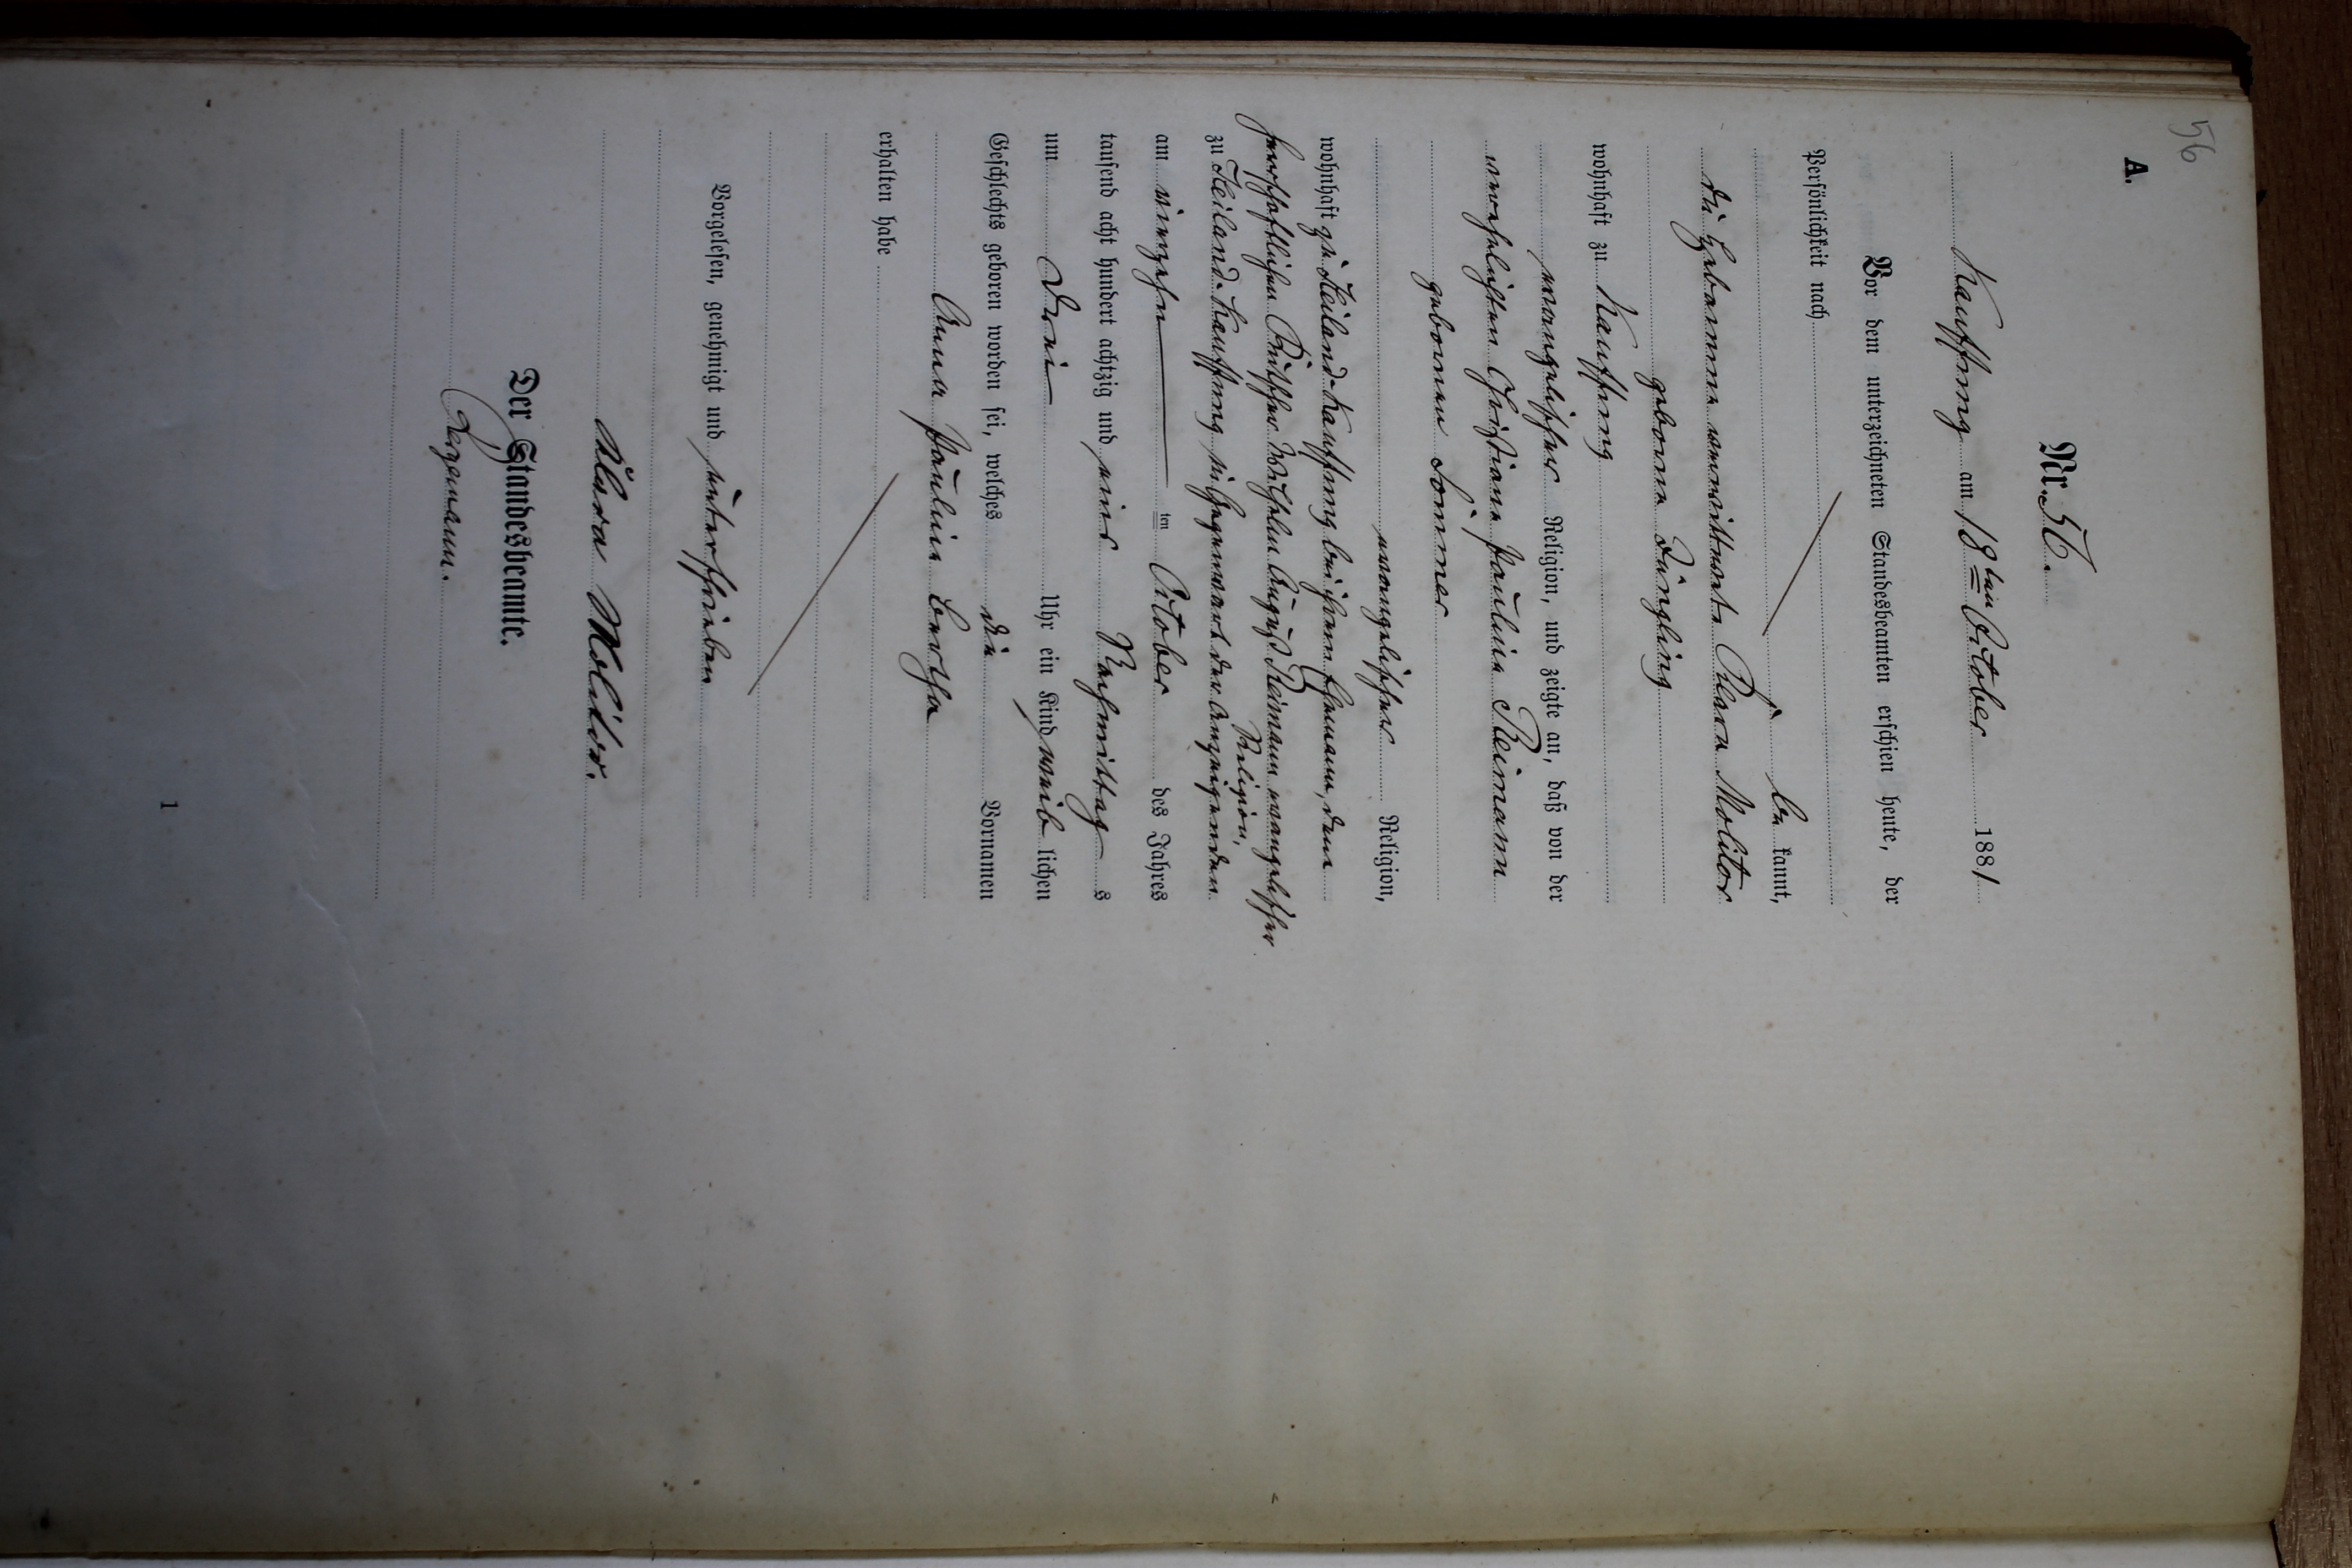 56
A.
Nr. 56.
Kauffung am 18ten October 1881
Vor dem unterzeichneten Standesbeamten erschien heute, der
Persönlichkeit nach
be kannt,
die Hebamme verwittwete Clara Molitor
geborne Düngling
wohnhaft zu Kauffung
evangelischer Religion, und zeigte an, daß von der
verehelichten Christiane Pauline Reimann
gebornen Sommer
evangelischer Religion,
wohnhaft zu Heiland-Kauffung bei ihrem Ehemann, dem
herrschaftlichen Kutscher Wilhelm August Reimann evangelischer
Religion,
zu Heiland-Kauffung in Gegenwart der Anzeigenden
am vierzehn ten October des Jahres
tausend acht hundert achtzig und eins Nachmittag s
um drei Uhr ein Kind weib lichen
Geschlechts geboren worden sei, welches die Vornamen
Anna Pauline Bertha
erhalten habe
Vorgelesen, genehmigt und unterschrieben
Klara Molitor.
Der Standesbeamte.
1